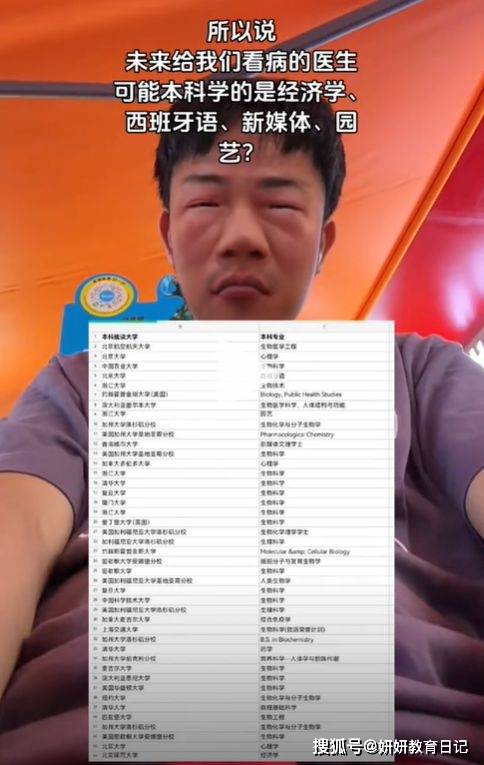 所以说
未来给我们看病的医生
可能本科学的是经济学、
西班牙语、新媒体、园
艺？
本科就读大学 本科专业
北京航空航天大学 生物医学工程
北京大学 心理学
中国农业大学 生物科学
北京大学
浙江大学 生物技术
约翰霍普金斯大学(美国) Biology, Public Health Studies
澳大利亚墨尔本大学 生物医学科学、人体结构与功能
浙江大学 园艺
加州大学洛杉矶分校 生物化学与分子生物学
美国加州大学圣地亚哥分校 Pharmacological Chemistry
香港城市大学 新媒体文理学士
美国加州大学圣地亚哥分校 生物科学
加拿大多伦多大学 心理学
浙江大学 生物科学
清华大学 生物科学
复旦大学 生物科学
厦门大学 生物科学
浙江大学 生物科学
爱丁堡大学(英国) 生物科学
美国加利福尼亚大学洛杉矶分校 生物化学理学学士
加利福尼亚大学洛杉矶分校 生理科学
约翰斯霍普金斯大学 Molecular &amp; Cellular Biology
密歇根大学安娜堡分校 细胞分子与发育生物学
密歇根大学 生物科学
美国加利福尼亚大学圣地亚哥分校 人类生物学
复旦大学 生物科学
中国科学技术大学 生物科学
美国加利福尼亚大学洛杉矶分校 生理科学
加拿大麦吉尔大学 综合免疫学
上海交通大学 生物科学(致远荣誉计划)
加州大学洛杉矶分校 B.S. in Biochemistry
清华大学 药学
加州大学伯克利分校 营养科学—人体学与新陈代谢
麦吉尔大学 生物科学
澳大利亚悉尼大学 生物科学
美国华盛顿大学 生物科学
纽约大学 生物化学与分子生物学
清华大学 数理基础科学
西北大学 生物工程
加州大学洛杉矶分校 生物化学与分子生物学
美国密歇根大学安娜堡分校 生物科学
北京大学 心理学
北京师范大学 经济学
搜狐号@妍妍教育日记